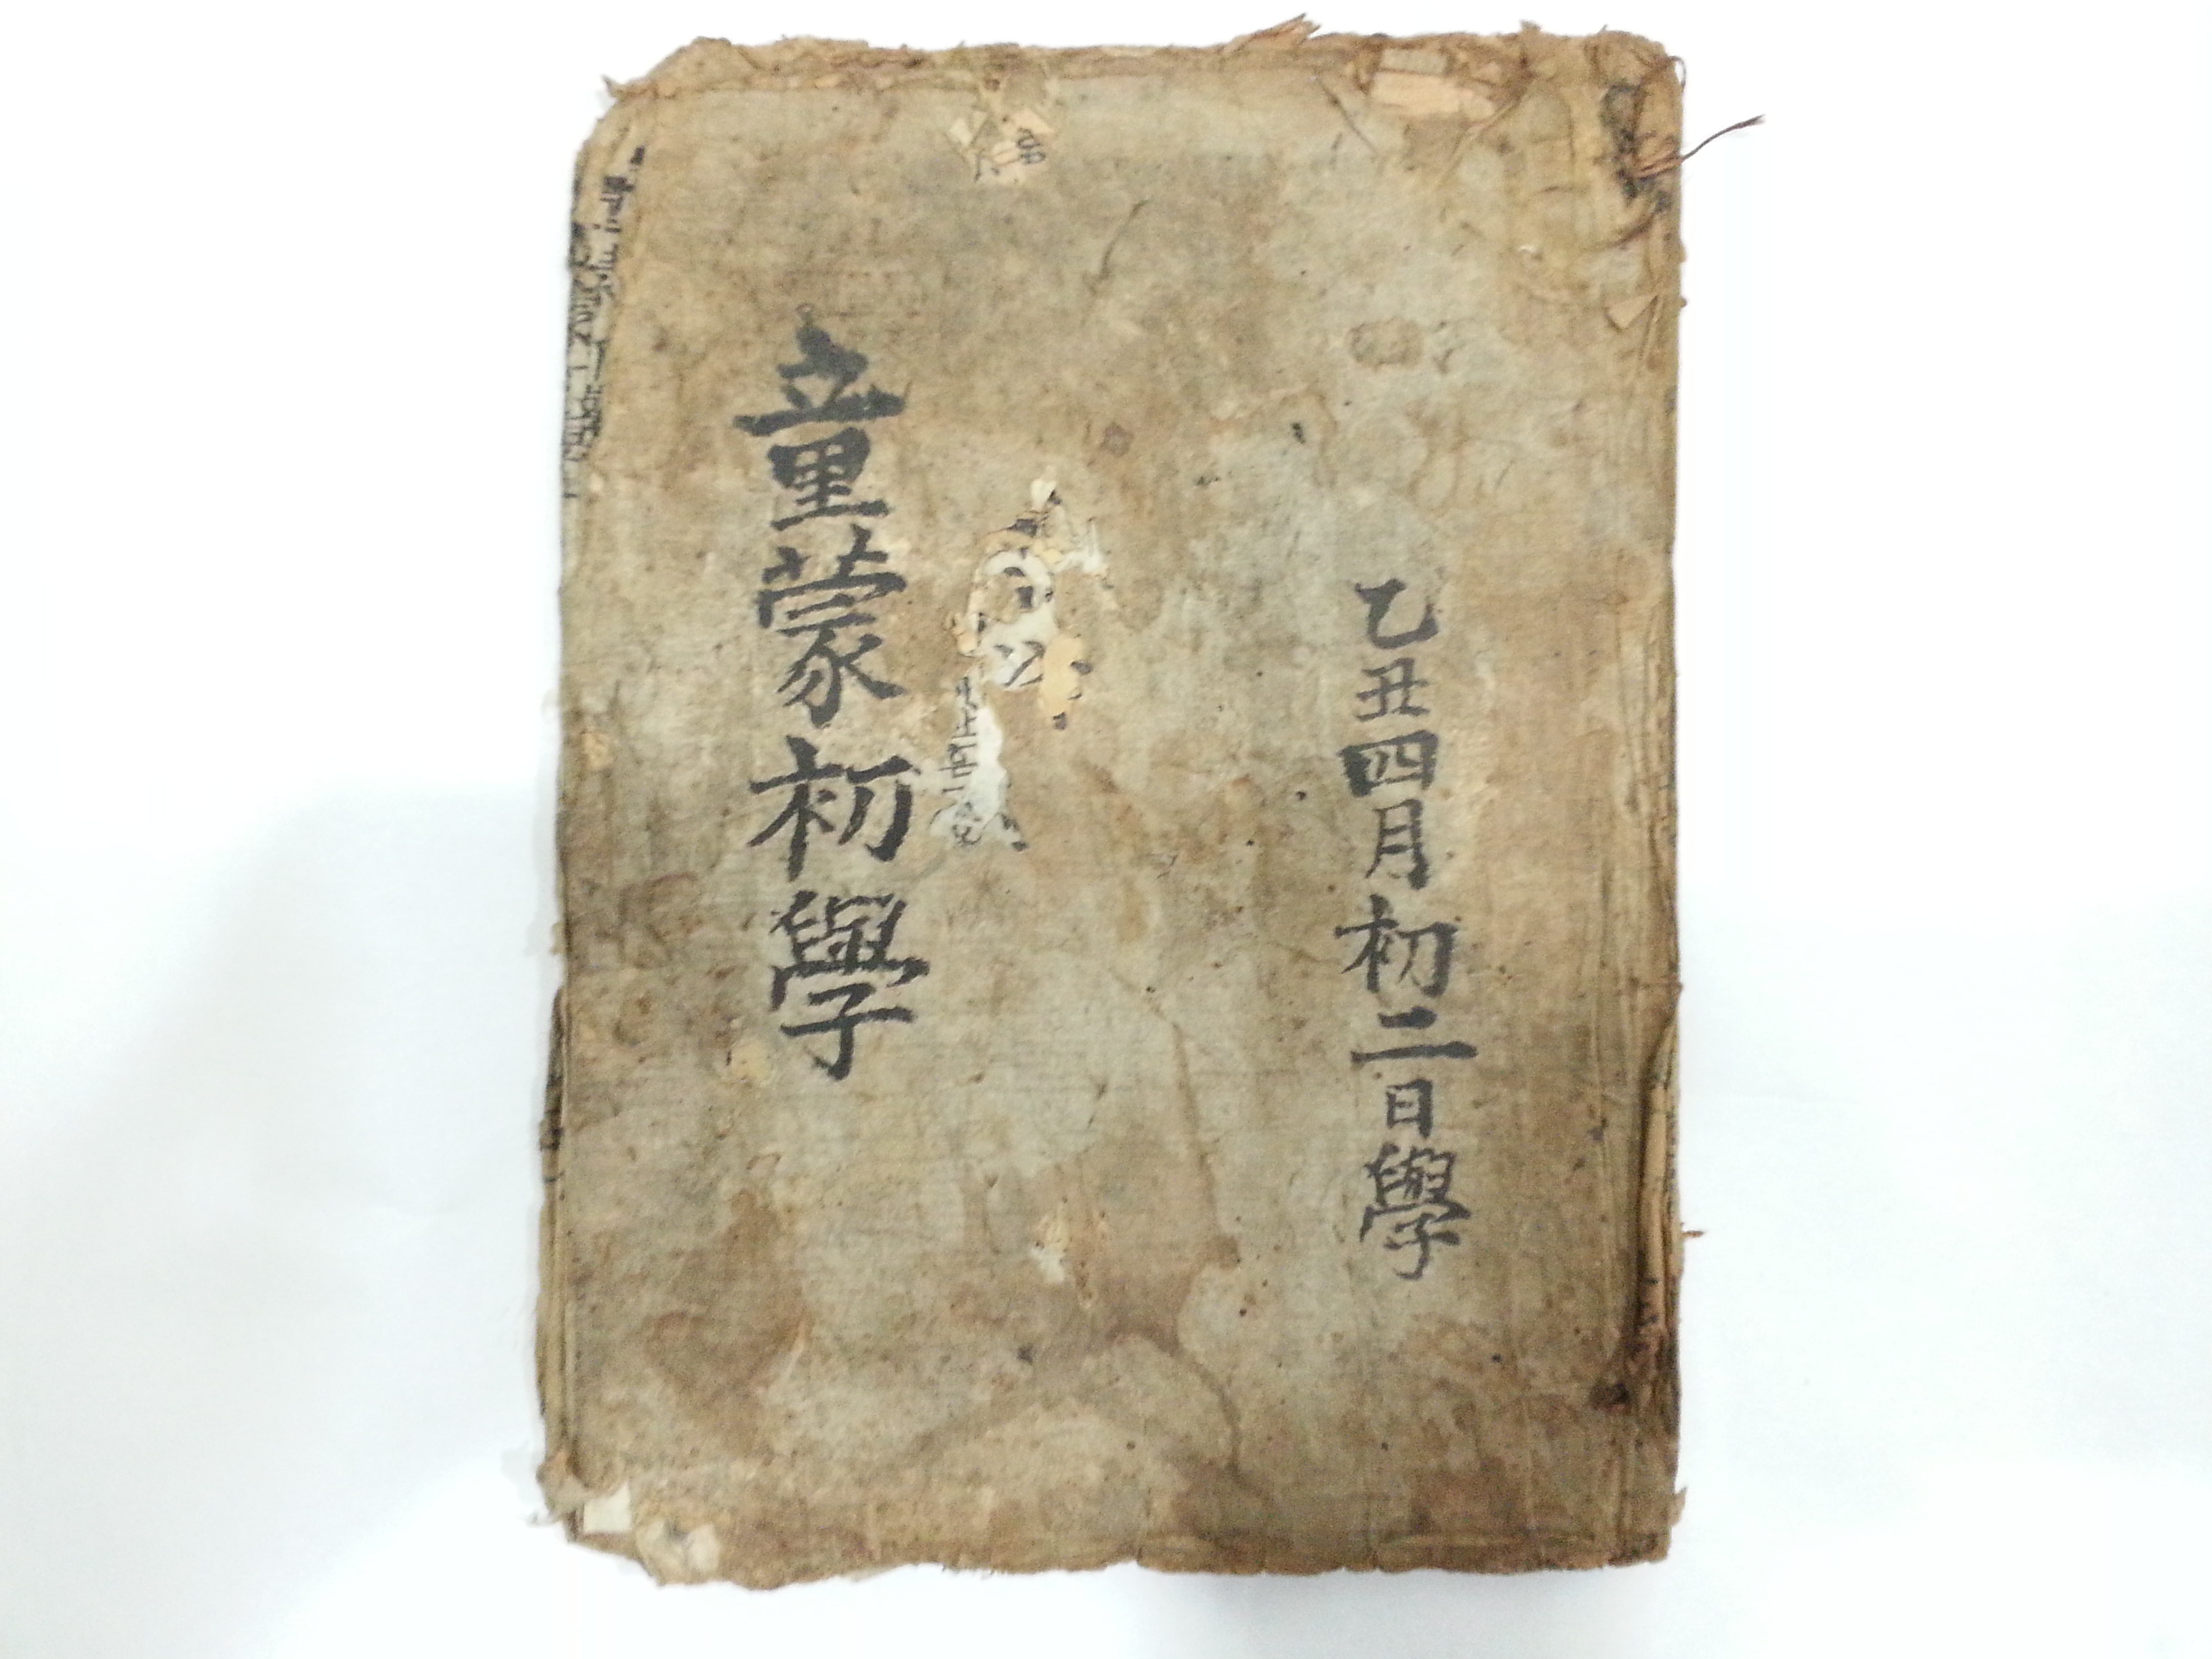 乙丑四月初二日學
童蒙初學